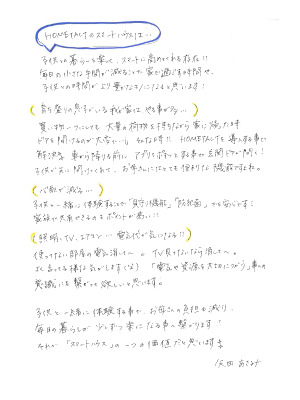 HOMETACTのスマートハウスは…
子供との暮らしを楽しく、スマートに高めてくれる存在!!
毎日の小さな手間が減ることで家で過ごす時間や、
子供との時間がより豊かなモノになると思います!
育ち盛りの息子がいる我が家は やる事が多い…
買い物一つにしても 大量の荷物を持ちながら 家に帰った時
ドアを開けるのが大変…。そんな時!! HOMETACTを導入する事で
解決!! 車から降りる前に アプリを持ってる事で玄関ドアが開く!
子供が先に開けてくれて、お母さんにとっても便利な機能ですよね。
心配が減る…
子供と一緒に体験することで「見守り機能」「防犯面」でも安心です!
家族で共有できるのもポイントが高い!!
照明、TV、エアコン… 電気代が気になる!!
使ってない部屋の電気消して〜。 TV見てないなら消して〜。
よく言ってる様な気がします(笑) 「電気や資源を大切につかう」事の
意識にも繋がって欲しいと思います。
子供と一緒に体験する事で、お母さんの負担も減り、
毎日の暮らしが 少しずつ楽になる事へ繋がります!
それが「スマートハウス」の一つの価値だと思います